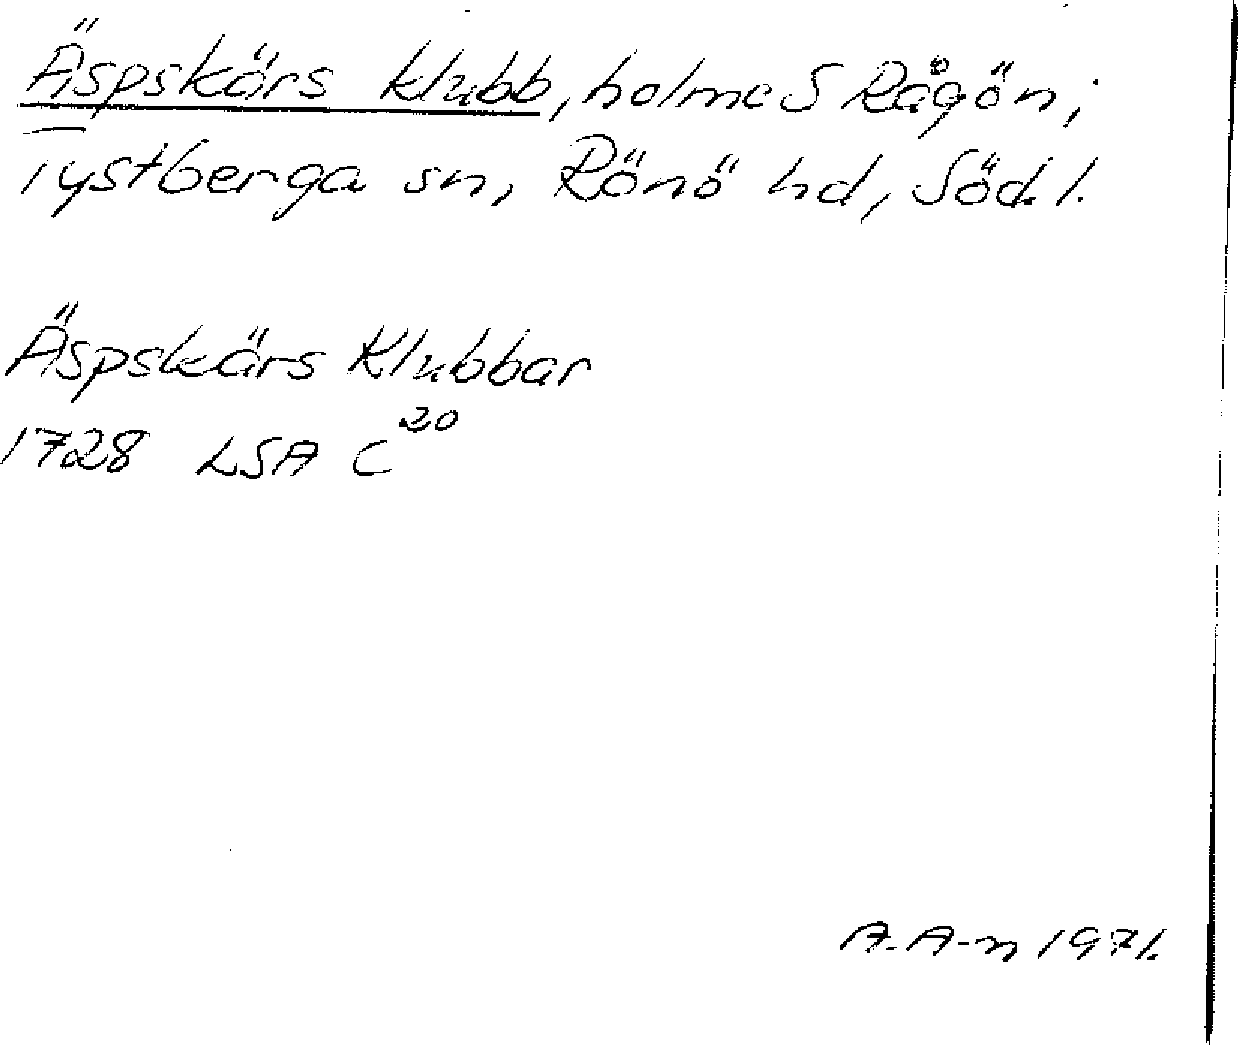 Äspskärs klubb, holme S Rågön;
Tystberga sn, Rönö hd, Söd.l.
Äspskärs Klubbar
1728 LSA C²⁰
A. A-n 1971.